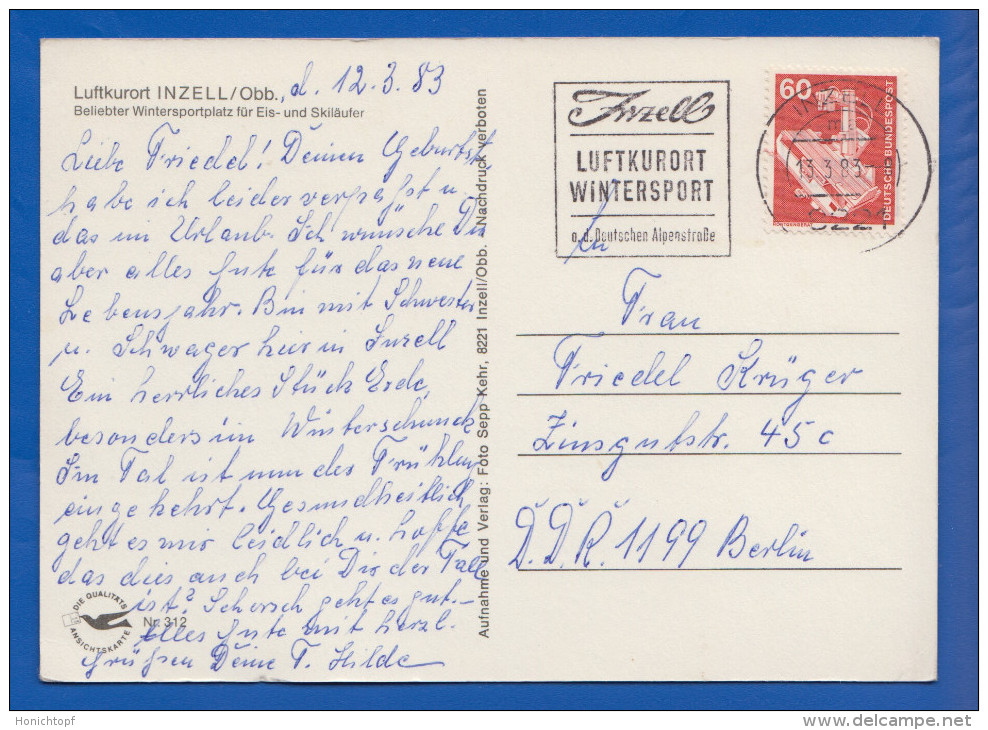 Luftkurort INZELL/Obb., d. 12.3.83
Beliebter Wintersportplatz für Eis- und Skiläufer
Liebe Friedel! Deinen Geburtst.
habe ich leider verpaßt u.
das im Urlaub. Ich wünsche Dir
aber alles Gute für das neue
Lebensjahr. Bin mit Schwester
u. Schwager hier in Inzell
Ein herrliches Stück Erde,
besonders im Winterschmuck
Im Tal ist nun der Frühling
eingekehrt. Gesundheitlich
geht es mir leidlich u. hoffe
das dies auch bei Dir der Fall
ist? Schorsch geht es gut.-
Alles Gute mit herzl.
Grüßen Deine T. Hilde
DIE QUALITÄTS
ANSICHTSKARTE
Nr. 312
Aufnahme und Verlag: Foto Sepp Kehr, 8221 Inzell/Obb. Nachdruck verboten
Inzell
LUFTKURORT
WINTERSPORT
a. d. Deutschen Alpenstraße
60
DEUTSCHE BUNDESPOST
INZELL
13.3.83
8221
An
Frau
Friedel Krüger
Zinsgutstr. 45c
D.D.R. 1199 Berlin
Honichtopf
www.delcampe.net